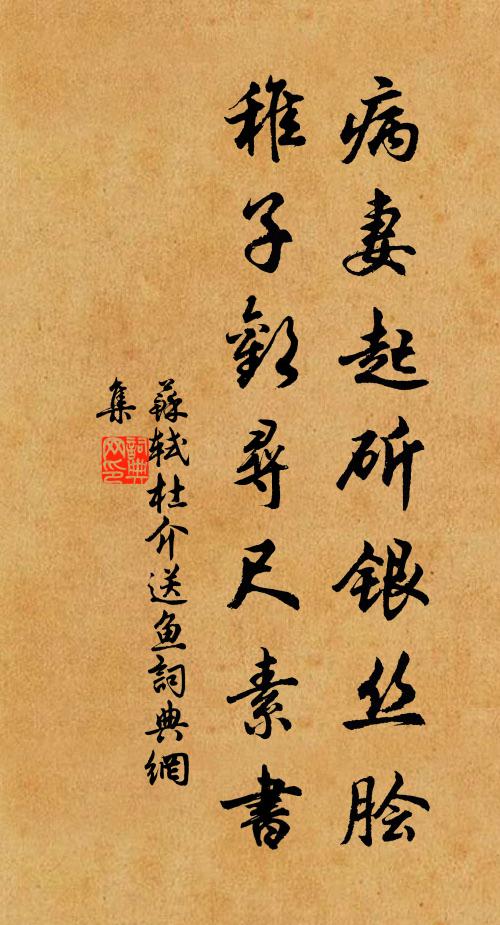 病妻起斫银丝脍
稚子欢寻尺素书
蘇軾杜介送魚詞典網
集
詞典网印